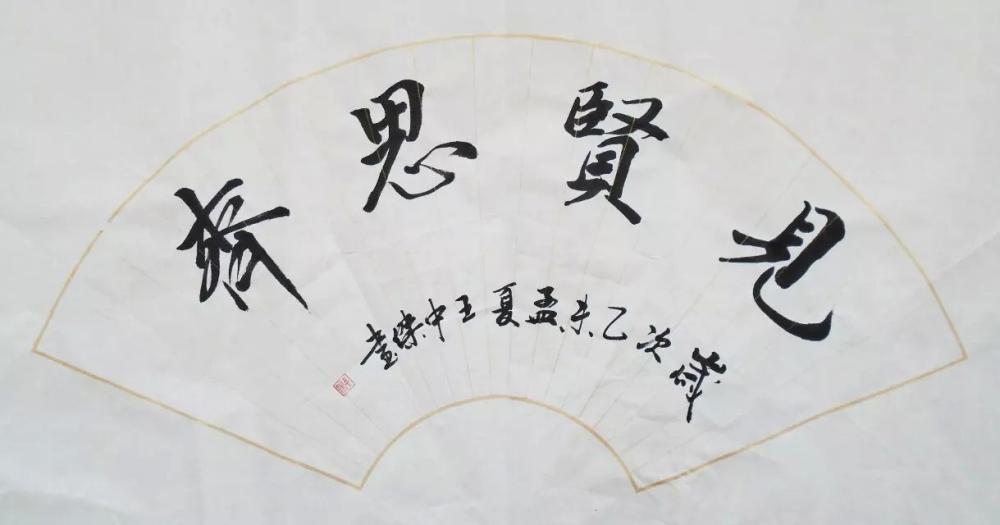 見賢思齊
歲次乙未孟夏王中榮書